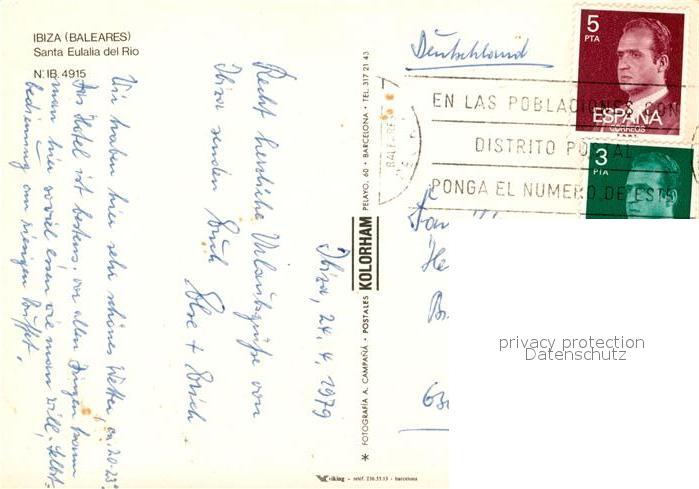 IBIZA (BALEARES)
Santa Eulalia del Rio
N.º IB. 4915
Ibiza, 24. 4. 1979
Recht herzliche Urlaubsgrüße von
Ibiza senden Euch Else + Erich
Wir haben hier sehr schönes Wetter, ca. 20-23°.
Das Hotel ist bestens. vor allen Dingen kann
man hier soviel essen wie man will. Selbst-
bedienung am riesigen Buffet.
* FOTOGRAFÍA A. CAMPAÑÁ • POSTALES KOLORHAM PELAYO, 60 • BARCELONA • TEL. 317 21 43
viking - teléf. 236.55.13 - barcelona
Deutschland
5
PTA
ESPAÑA
CORREOS
F.N.M.T.
3
PTA
BALEARES
EN LAS POBLACIONES CON
DISTRITO POSTAL
PONGA EL NUMERO DE ESTE
privacy protection
Datenschutz